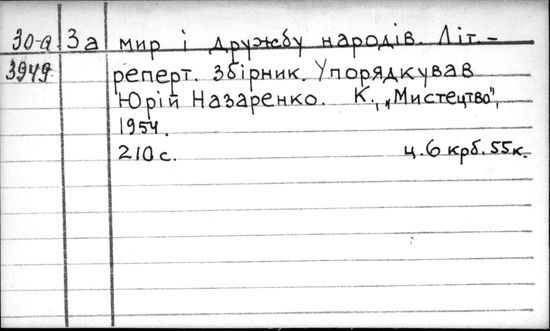 30-а За мир і дружбу народів. Літ.-
3949 реперт. збірник. Упорядкував
Юрій Назаренко. К., „Мистецтво",
1954.
210 с. ц. 6 крб. 55 к.